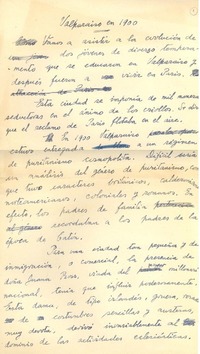 Valparaíso en 1900
1
Vamos a asistir a la evolución de
dos jóvenes de diverso tempera-
mento que se educaron en Valparaíso y
después fueron a vivir en París.
Esta ciudad se imponía de manera
seductora en el ánimo de los criollos. Se diría
que el reclamo de París flotaba en el aire.
En 1900 Valparaíso
entregada a un régimen
de puritanismo cosmopolita. Difícil sería
un análisis del género de puritanismo, los
que tuvo caracteres británicos,
norteamericanos, coloniales y romanos. En
efecto, los padres de familia
recordaban a los padres de la
época de Catón.
Para una ciudad tan pequeña y de
inmigración, o comercial, la
doña Juana Ross, viuda del millonario
nacional, tenía que influir poderosamente.
Esta dama, de tipo irlandés, gruesa,
de costumbres sencillas y austeras,
muy devota, derivó insensiblemente al
dominio de las actividades eclesiásticas.